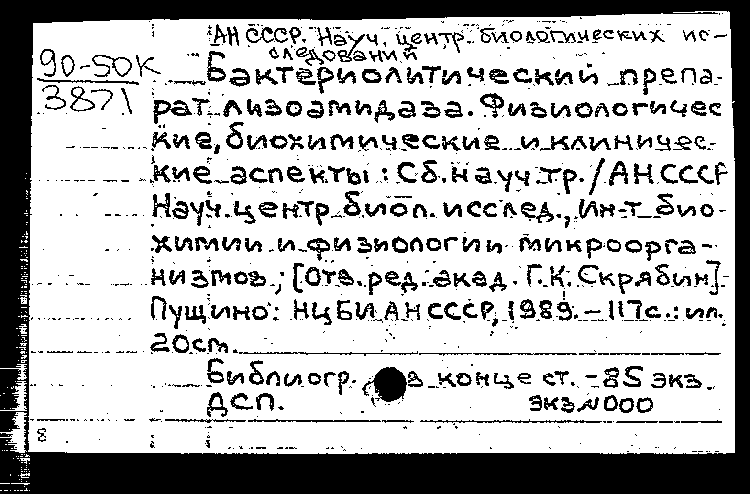 АН СССР. Науч. центр. биологических ис-
следований
90-50К
3871
Бактериолитический препа-
рат лизоамидаза. Физиологичес
кие, биохимические и клиничес-
кие аспекты : Сб. науч. тр. / АН СССР
Науч. центр биол. исслед., Ин-т био-
химии и физиологии микроорга-
низмов ; [Отв. ред. акад. Г.К. Скрябин].
Пущино : НЦБИ АН СССР, 1989. - 117с. : ил.
20cm.
Библиогр. в конце ст. - 85 экз.
ДСП. экз N 000
8